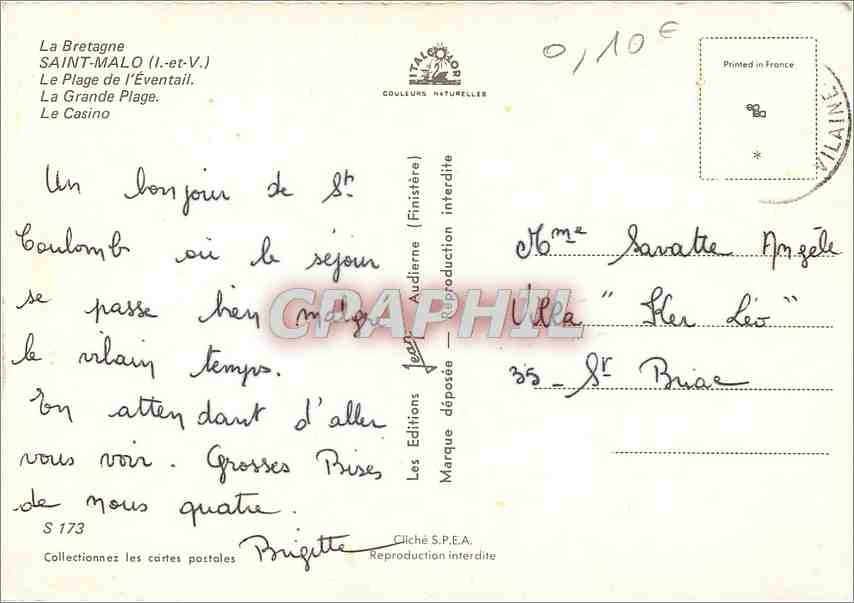 La Bretagne
SAINT-MALO (I.-et-V.)
Le Plage de l'Éventail.
La Grande Plage.
Le Casino
ITALCOLOR
COULEURS NATURELLES
0,10€
Printed in France
*
VILAINE
Un bonjour de St
Coulomb où le séjour
se passe bien malgré
le vilain temps.
En attendant d'aller
vous voir. Grosses Bises
de nous quatre.
Brigitte
S 173
Collectionnez les cartes postales
Les Editions Jean Audierne (Finistère)
Marque déposée — Reproduction interdite
Cliché S.P.E.A.
Reproduction interdite
Mme Savatte Angèle
Villa "Ker Léo"
35 - St Briac
CRAPHIL